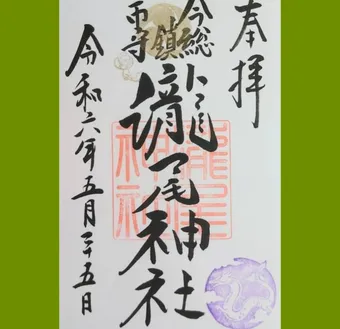 奉拝
今市総鎮守
瀧尾神社
瀧尾神社
令和六年五月二十五日